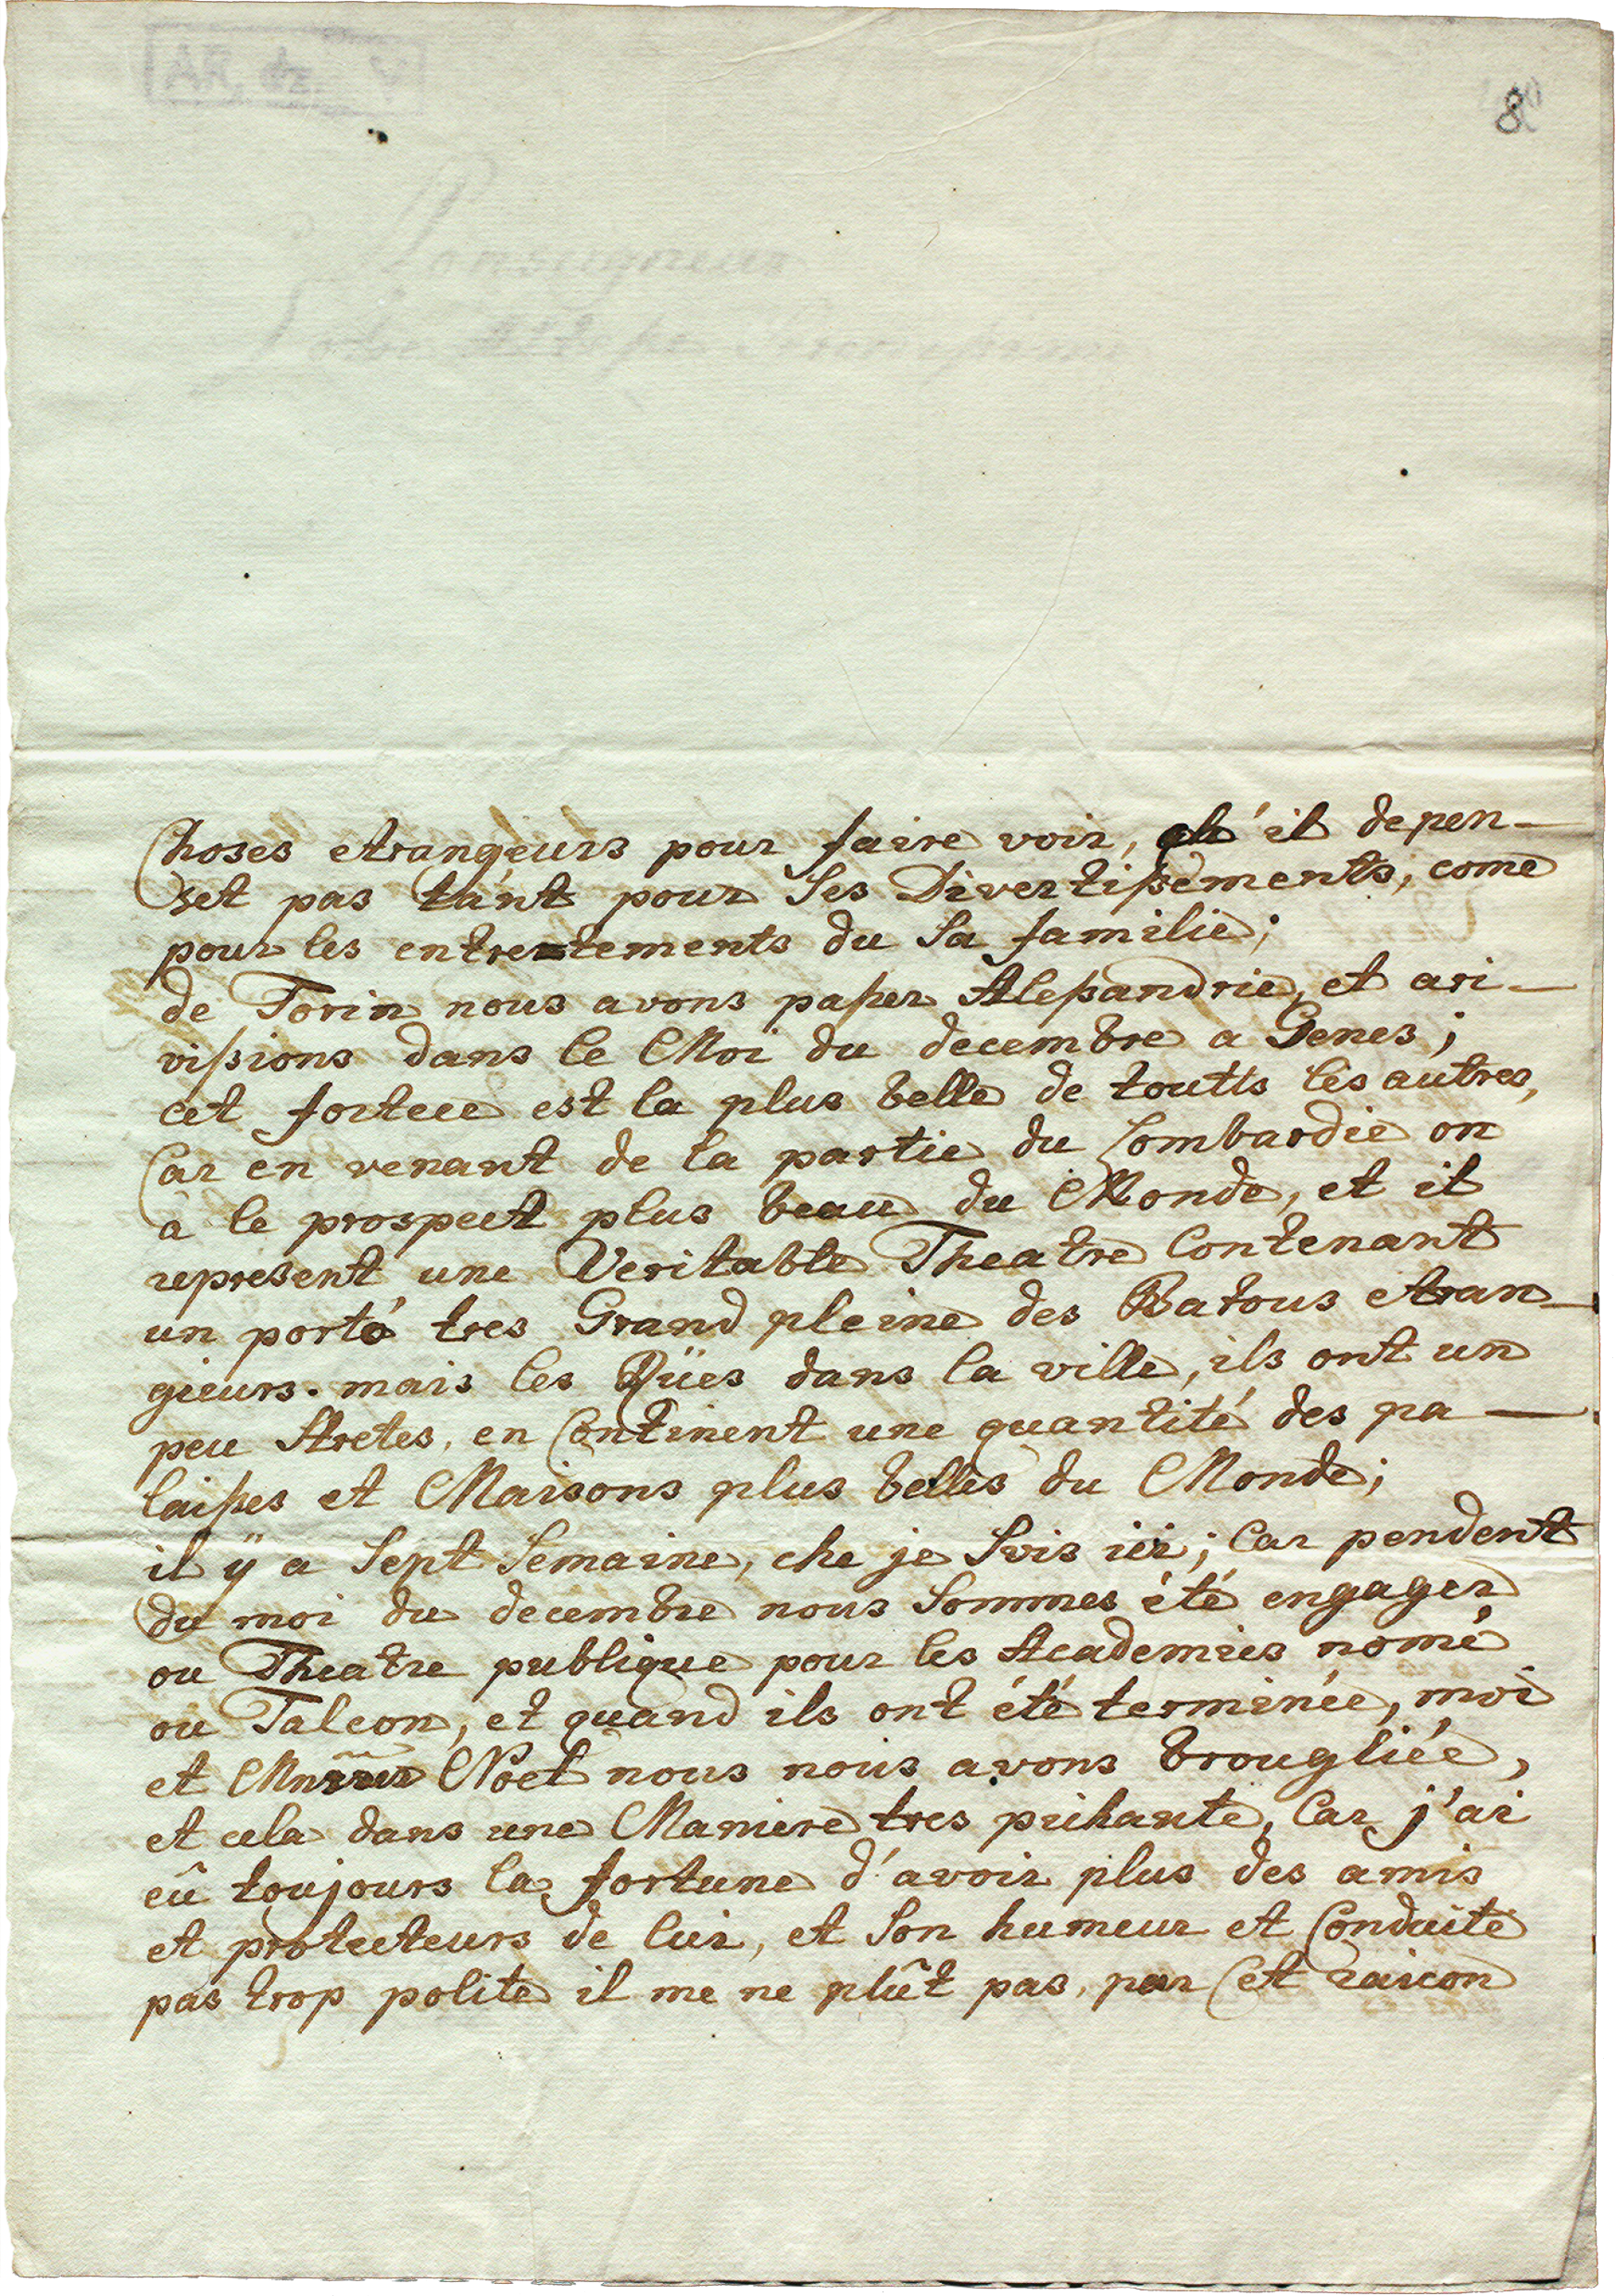 8
Monseigneur
Choses etrangeurs pour faire voir, ch'il depen-
set pas tant pour Ses Divertißements, come
pour les entretements du Sa familie;
de Torin nous avons paßer Aleßandrie, et ari-
vißions dans le Moi du decembre a Genes;
cet fortece est la plus belle de toutts les autres,
Car en venant de la partie du Lombardie on
à le prospect plus beau du Monde, et il
represent une Veritable Theatre Contenant
un porto tres Grand pleine des Batous etran-
gieurs. mais les Rües dans la ville, ils ont un
peu Stretes, en Continent une quantité des pa-
laißes et Maisons plus belles du Monde;
il ÿ a Sept Semaine, che je Svis ici; Car pendent
du moi du decembre nous Sommes été engager
ou Theatre publique pour les Academies nomé
ou Falcon, et quand ils ont été terminée, moi
et Noel nous nous avons brougliée,
et cela dans une Maniere tres pikante, Car j'ai
eû toujours la fortune d'avoir plus des amis
et protecteurs de lui, et Son humeur et Conduite
pas trop polite il me ne plût pas, par Cet raison